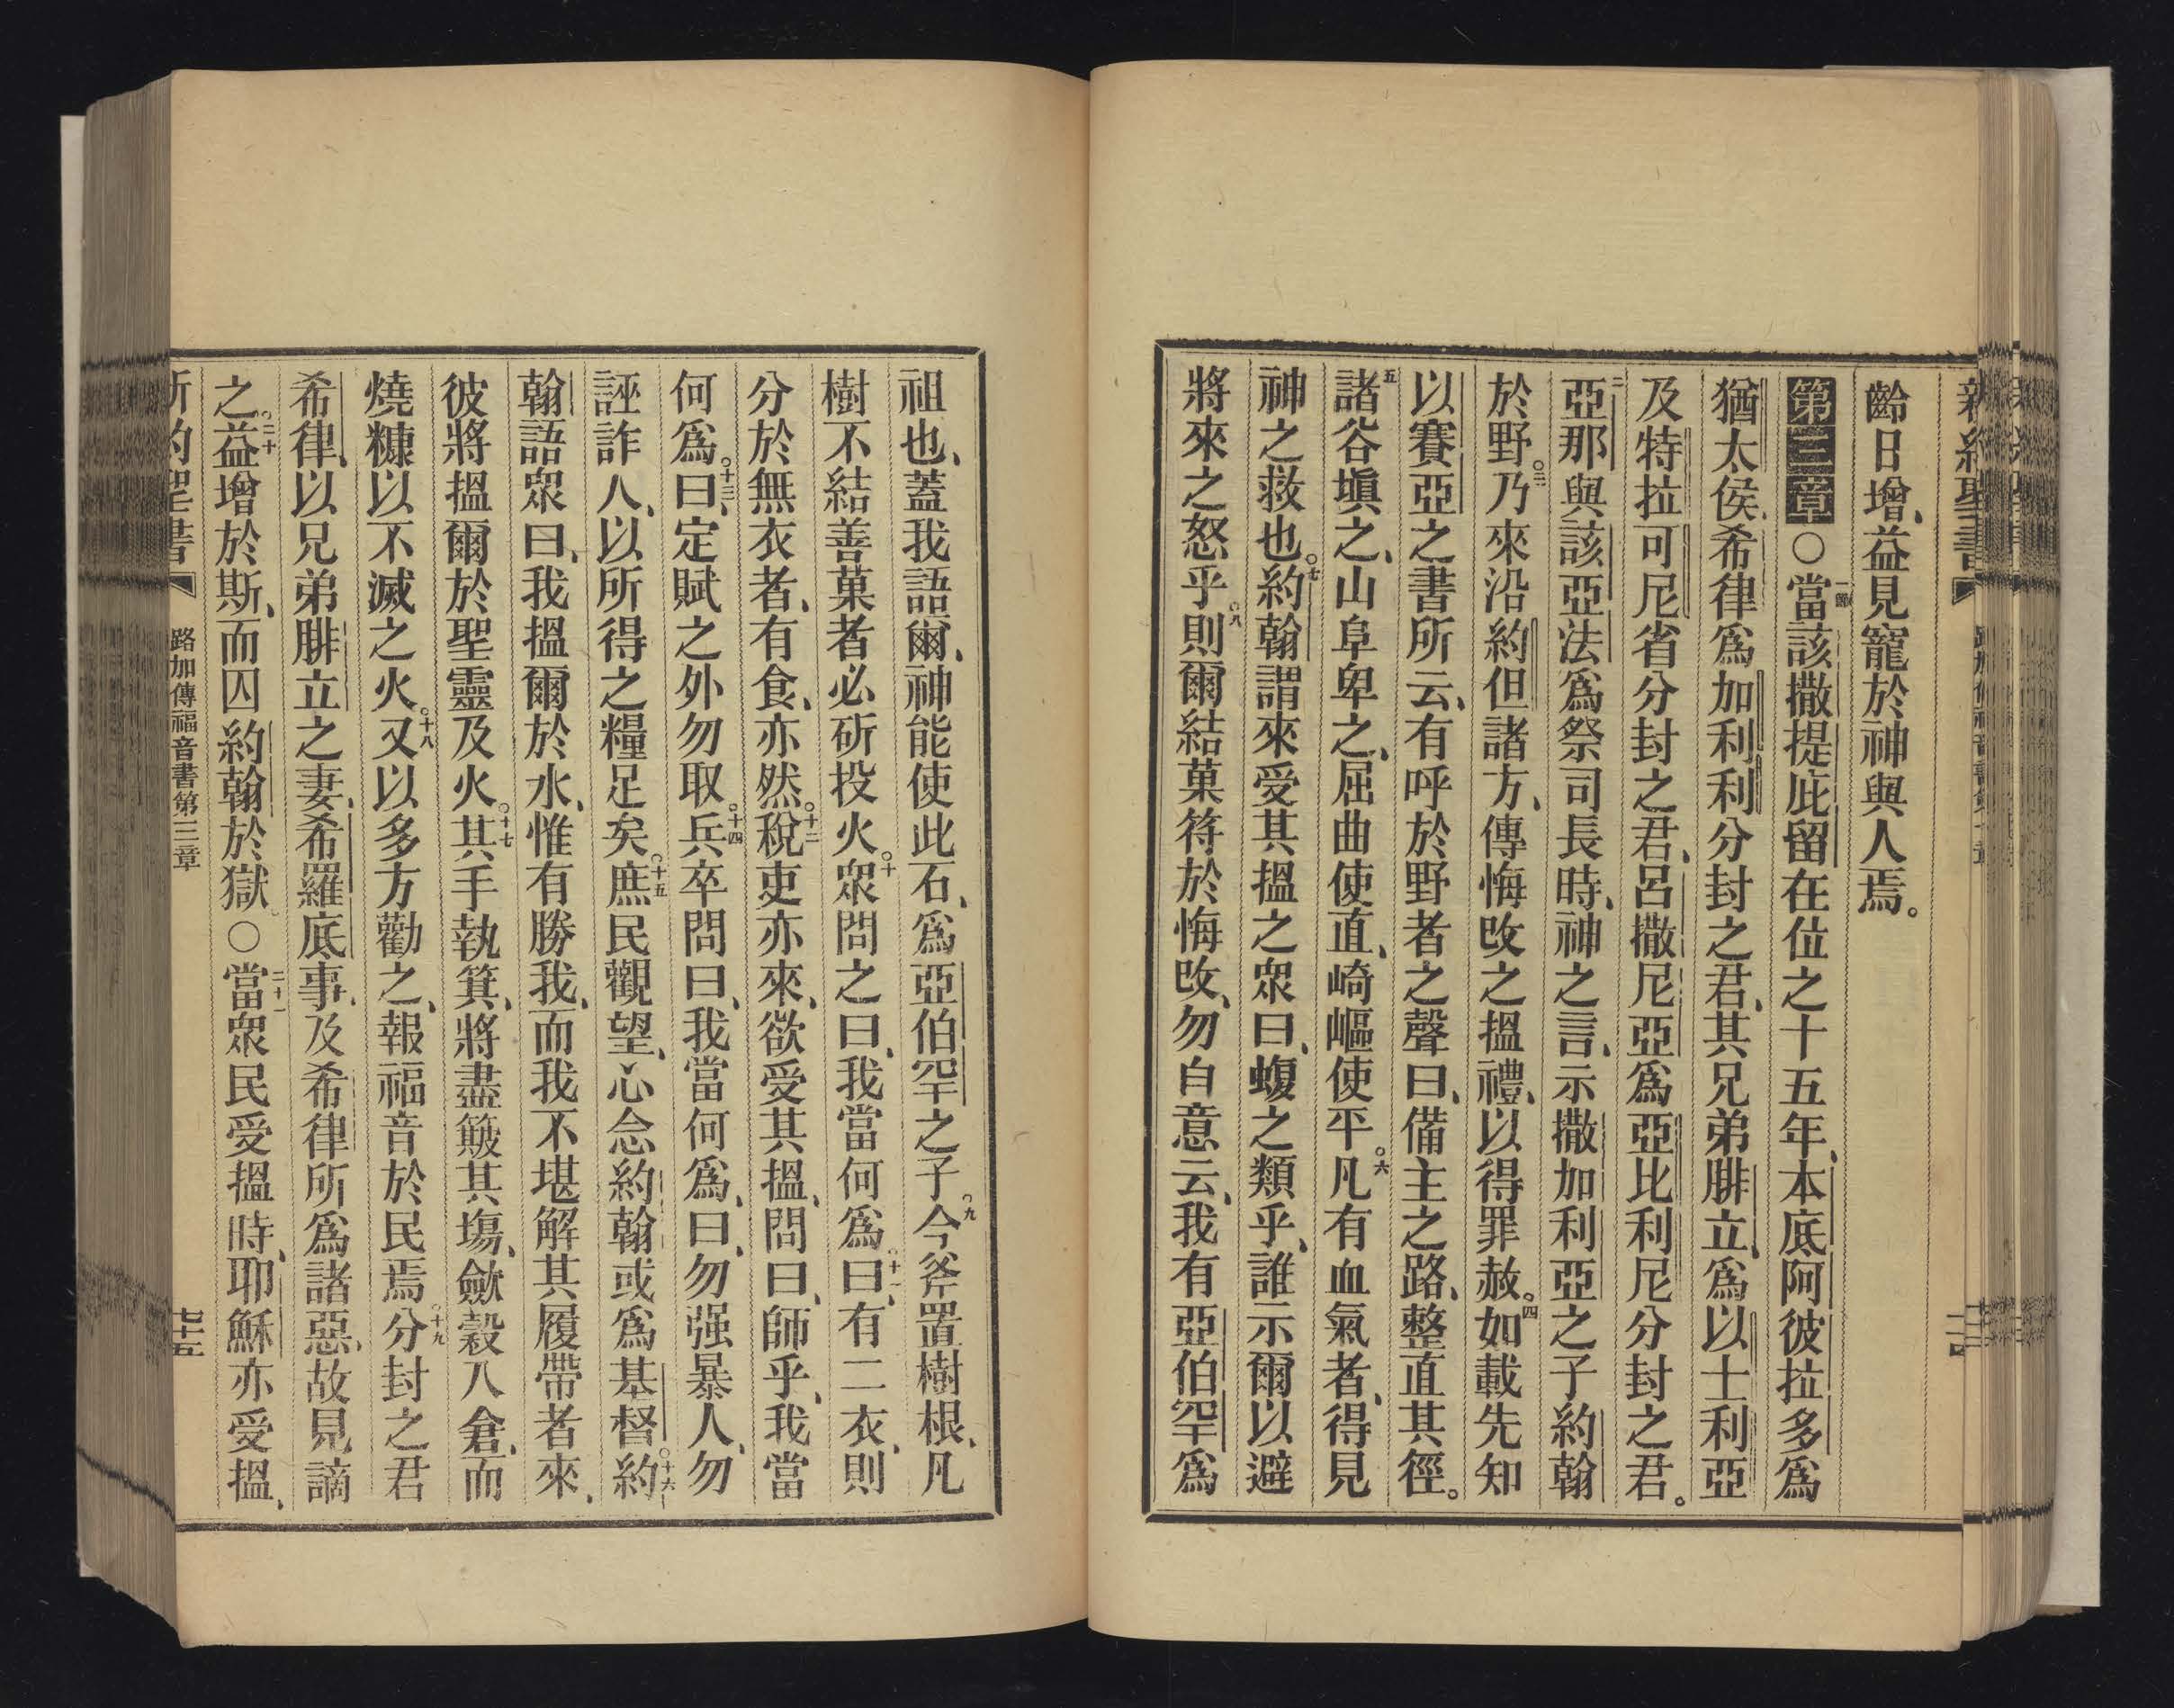 齡日增、益見寵於神與人焉。
第三章○一節當該撒提庇留在位之十五年、本底阿彼拉多爲
猶太侯、希律爲加利利分封之君、其兄弟腓立、爲以士利亞
及特拉可尼省分封之君、呂撒尼亞爲亞比利尼分封之君。
二亞那與該亞法爲祭司長時、神之言、示撒加利亞之子約翰
於野。三乃來沿約但諸方、傳悔改之搵禮、以得罪赦。四如載先知
以賽亞之書所云、有呼於野者之聲曰、備主之路、整直其徑。
五諸谷塡之、山阜卑之、屈曲使直、崎嶇使平。六凡有血氣者、得見
神之救也。七約翰謂來受其搵之眾曰、蝮之類乎、誰示爾以避
將來之怒乎。八則爾結菓符於悔改、勿自意云、我有亞伯罕爲
祖也、蓋我語爾、神能使此石、爲亞伯罕之子。九今斧置樹根、凡
樹不結善菓者必斫投火。十眾問之曰、我當何爲。十一曰、有二衣、則
分於無衣者、有食、亦然。十二稅吏亦來、欲受其搵、問曰、師乎、我當
何爲。十三曰、定賦之外勿取。十四兵卒問曰、我當何爲、曰、勿强暴人、勿
誣詐人、以所得之糧足矣。十五庶民觀望、心念約翰或爲基督。十六約
翰語眾曰、我搵爾於水、惟有勝我、而我不堪解其履帶者來、
彼將搵爾於聖靈及火。十七其手執箕、將盡簸其塲、歛穀入倉、而
燒糠以不滅之火。十八又以多方勸之、報福音於民焉。十九分封之君
希律、以兄弟腓立之妻、希羅底事、及希律所爲諸惡、故見謫
之。二十益增於斯、而囚約翰於獄。○二十一當眾民受搵時、耶穌亦受搵、
路加傳福音書第三章
七十五